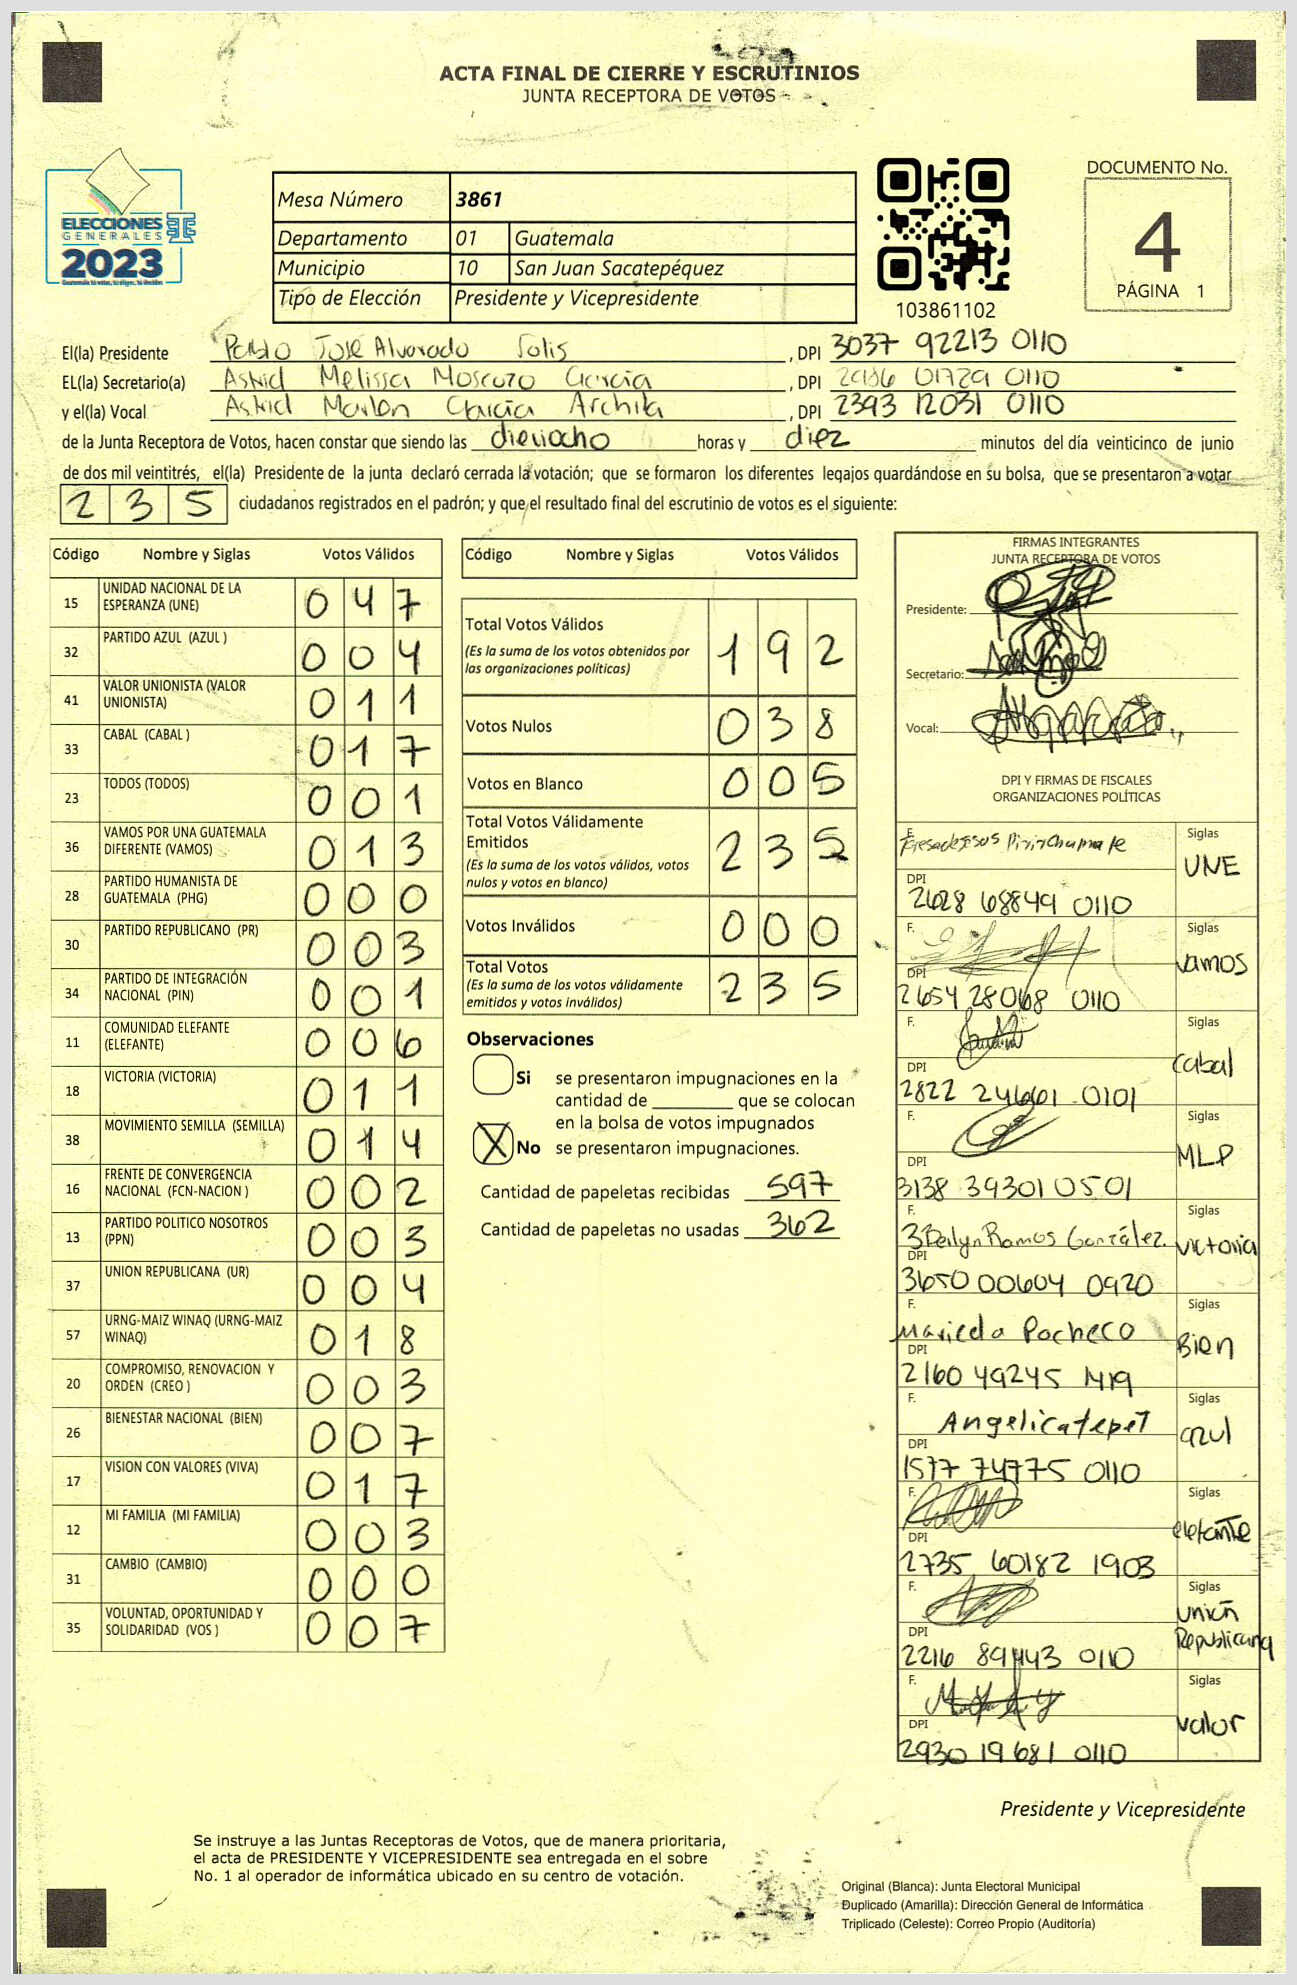 ACTA FINAL DE CIERRE Y ESCRUTINIOS
JUNTA RECEPTORA DE VOTOS
ELECCIONES
GENERALES
2023
Mesa Número 3861
Departamento 01 Guatemala
Municipio 10 San Juan Sacatepéquez
Tipo de Elección Presidente y Vicepresidente
103861102
DOCUMENTO No.
4
PÁGINA 1
El(la) Presidente Pablo José Alvarado Solis , DPI 3037 92213 0110
EL(la) Secretario(a) Astrid Melissa Moscozo García , DPI 01729 0110
y el(la) Vocal Astrid Marlen García Archila , DPI 2393 12031 0110
de la Junta Receptora de Votos, hacen constar que siendo las dieciocho horas y diez minutos del día veinticinco de junio
de dos mil veintitrés, el(la) Presidente de la junta declaró cerrada la votación; que se formaron los diferentes legajos guardándose en su bolsa, que se presentaron a votar
235 ciudadanos registrados en el padrón; y que el resultado final del escrutinio de votos es el siguiente:
Código Nombre y Siglas Votos Válidos
15 UNIDAD NACIONAL DE LA ESPERANZA (UNE) 047
32 PARTIDO AZUL (AZUL ) 004
41 VALOR UNIONISTA (VALOR UNIONISTA) 011
33 CABAL (CABAL ) 017
23 TODOS (TODOS) 001
36 VAMOS POR UNA GUATEMALA DIFERENTE (VAMOS) 013
28 PARTIDO HUMANISTA DE GUATEMALA (PHG) 000
30 PARTIDO REPUBLICANO (PR) 003
34 PARTIDO DE INTEGRACIÓN NACIONAL (PIN) 001
11 COMUNIDAD ELEFANTE (ELEFANTE) 006
18 VICTORIA (VICTORIA) 011
38 MOVIMIENTO SEMILLA (SEMILLA) 014
16 FRENTE DE CONVERGENCIA NACIONAL (FCN-NACION ) 002
13 PARTIDO POLITICO NOSOTROS (PPN) 003
37 UNION REPUBLICANA (UR) 004
57 URNG-MAIZ WINAQ (URNG-MAIZ WINAQ) 018
20 COMPROMISO, RENOVACION Y ORDEN (CREO ) 003
26 BIENESTAR NACIONAL (BIEN) 007
17 VISION CON VALORES (VIVA) 017
12 MI FAMILIA (MI FAMILIA) 003
31 CAMBIO (CAMBIO) 000
35 VOLUNTAD, OPORTUNIDAD Y SOLIDARIDAD (VOS ) 007
Código Nombre y Siglas Votos Válidos
Total Votos Válidos 192
(Es la suma de los votos obtenidos por
las organizaciones políticas)
Votos Nulos 038
Votos en Blanco 005
Total Votos Válidamente
Emitidos 235
(Es la suma de los votos válidos, votos
nulos y votos en blanco)
Votos Inválidos 000
Total Votos 235
(Es la suma de los votos válidamente
emitidos y votos inválidos)
Observaciones
Si se presentaron impugnaciones en la
cantidad de ________ que se colocan
en la bolsa de votos impugnados
X No se presentaron impugnaciones.
Cantidad de papeletas recibidas 597
Cantidad de papeletas no usadas 362
FIRMAS INTEGRANTES
JUNTA RECEPTORA DE VOTOS
Presidente:
Secretario:
Vocal:
DPI Y FIRMAS DE FISCALES
ORGANIZACIONES POLÍTICAS
F. Siglas
UNE
DPI
2628 68849 0110
F. Siglas
vamos
DPI
2654 28068 0110
F. Siglas
cabal
DPI
2822 24661 0101
F. Siglas
MLP
DPI
3138 39301 0501
F. Deilyn Ramos González Siglas
victoria
DPI
3650 00604 0920
F. Siglas
Maricela Pacheco Bien
DPI
2160 49245 1419
F. Siglas
Angelicatepet azul
DPI
1577 74775 0110
F. Siglas
elefante
DPI
2735 60182 1903
F. Siglas
unión
Republicana
DPI
2216 89443 0110
F. Siglas
valor
DPI
2930 19681 0110
Presidente y Vicepresidente
Se instruye a las Juntas Receptoras de Votos, que de manera prioritaria,
el acta de PRESIDENTE Y VICEPRESIDENTE sea entregada en el sobre
No. 1 al operador de informática ubicado en su centro de votación.
Original (Blanca): Junta Electoral Municipal
Duplicado (Amarilla): Dirección General de Informática
Triplicado (Celeste): Correo Propio (Auditoría)